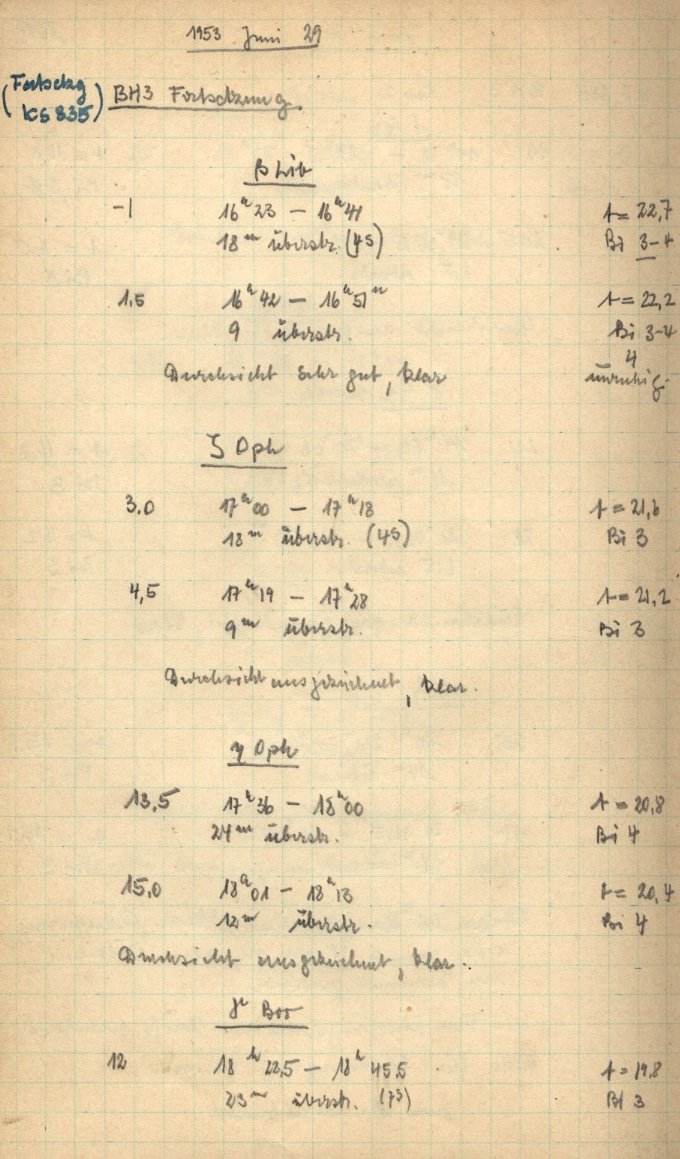 1953 Juni 29
(Fortsetzg
KS 835)
BH3 Fortsetzung
β Lib
-1 16h 23 – 16h 41 t = 22,7
18m überstr. (45) Bi 3-4
1,5 16h 42 – 16h 51m t = 22,2
9 überstr. Bi 3-4
4
Durchsicht sehr gut, klar unruhig.
ζ Oph
3.0 17h 00 – 17h 18 t = 21,6
18m überstr. (45) Bi 3
4,5 17h 19 – 17h 28 t = 21,2
9m überstr. Bi 3
Durchsicht ausgezeichnet, klar.
η Oph
13,5 17h 36 – 18h 00 t = 20,8
24m überstr. Bi 4
15,0 18h 01 – 18h 13 t = 20,4
12m überstr. Bi 4
Durchsicht ausgezeichnet, klar.
γ Boo
12 18h 22,5 – 18h 45,5 t = 19,8
23m überstr. (73) Bi 3